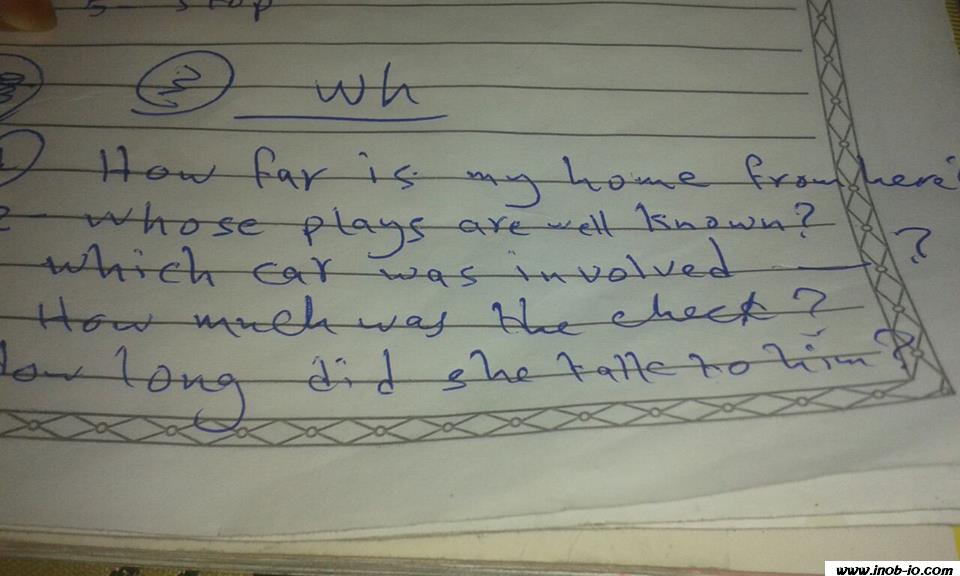 5- stop
wh
How far is my home from here?
2- Whose plays are well known?
which car was involved ——— ?
How much was the check?
How long did she talk to him?
www.inob-io.com